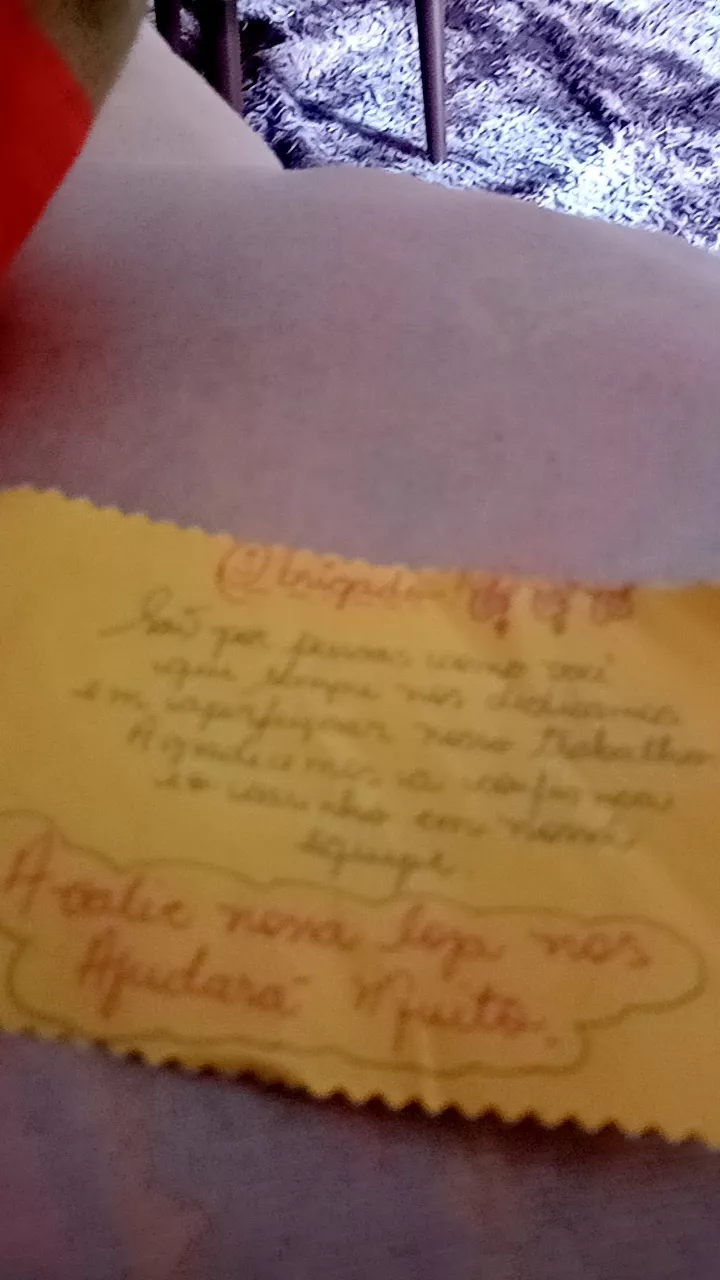 Obrigada
São por pessoas como você
que sempre nos dedicamos
em aperfeiçoar nosso trabalho
Agradecemos a confiança
e o carinho em nossa
equipe.
Avalie nossa loja nos
Ajudará Muito.